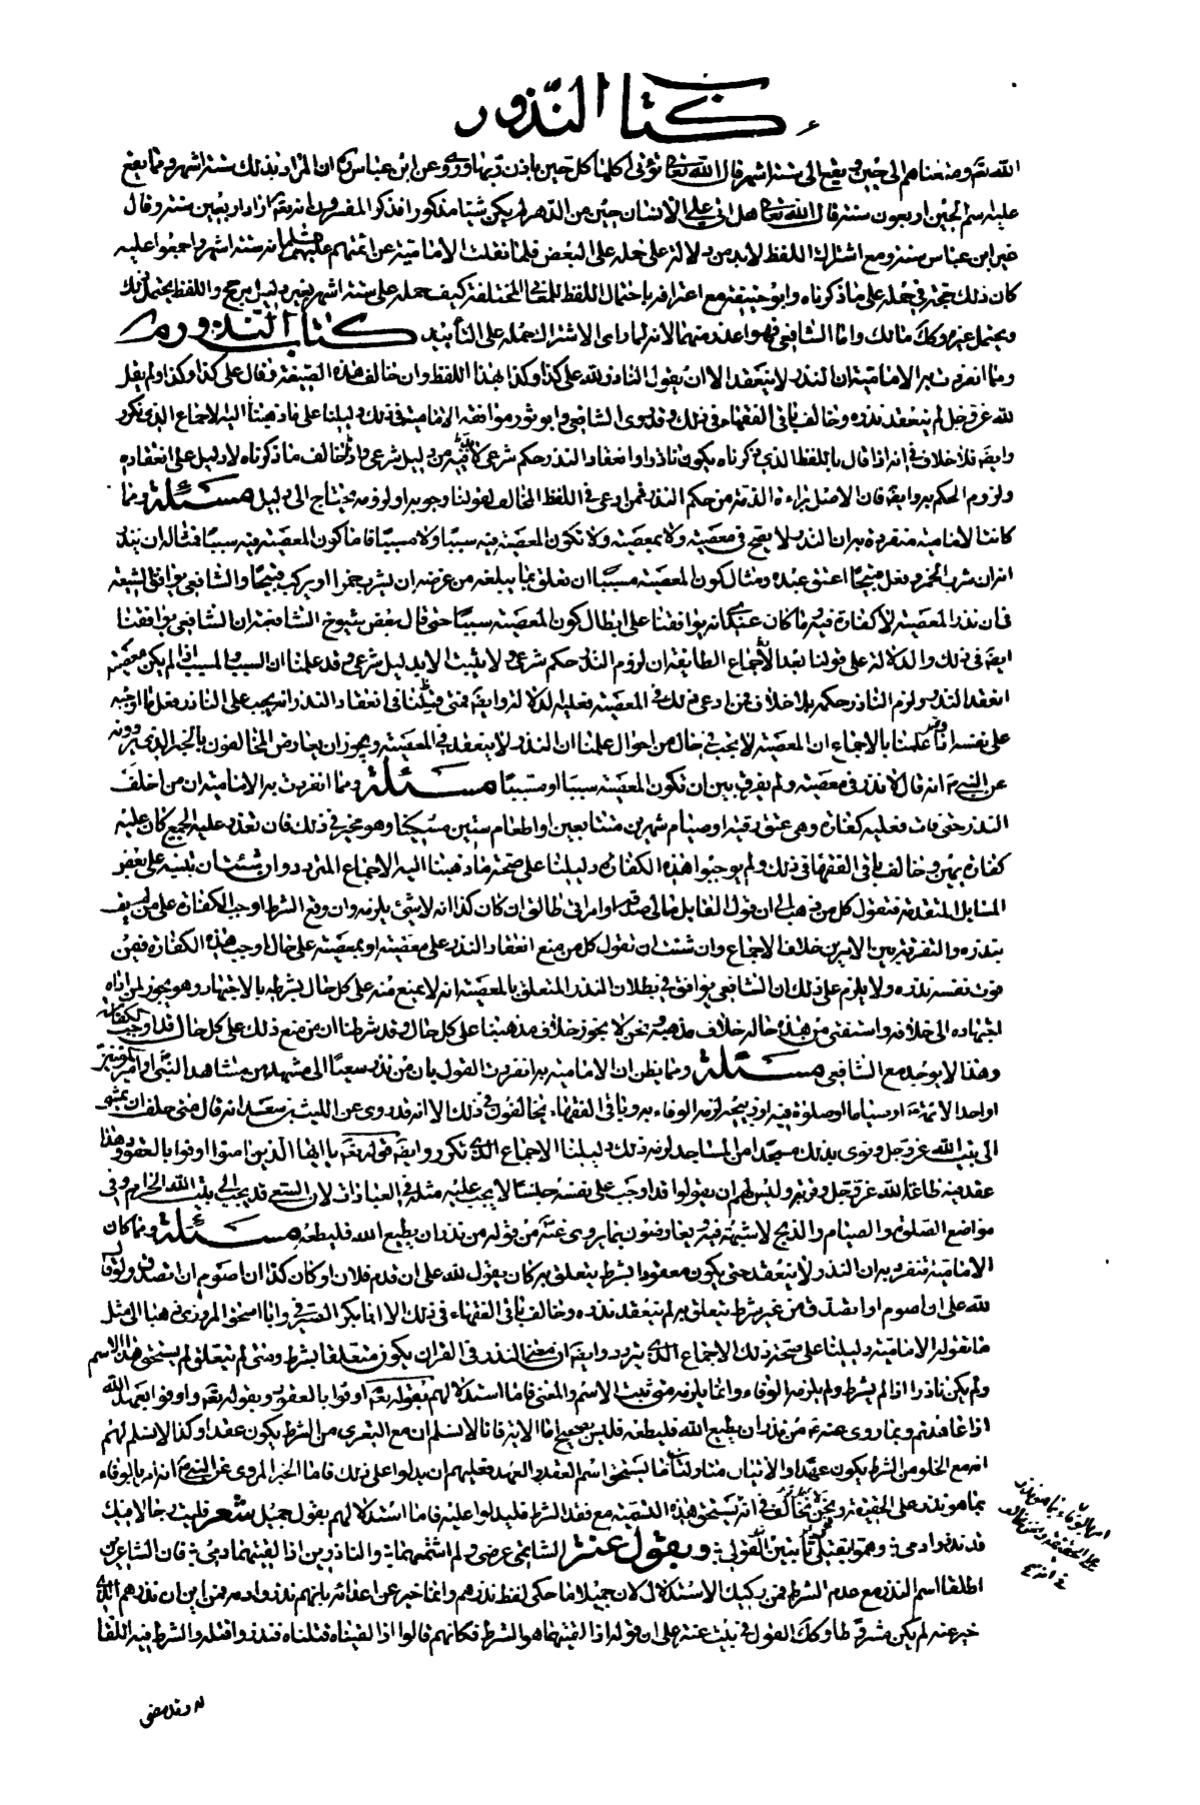 كتاب النذور
الله تع ومتعناهم الى حين ويقع الى ستة اشهر قال الله تعا تؤتى اكلها كل حين باذن ربها وروى عن ابن عباس ره ان المراد بذلك ستة اشهر ومما يقع
عليه اسم الحين اربعون سنة قال الله تعا هل اتى على الانسان حين من الدهر لم يكن شيئا مذكورا فذكر المفسرون انه تع اراد اربعين سنة وقال
غير ابن عباس سنة ومع اشتراك اللفظ لابد من دلالة على حمله على البعض فلما نقلت الامامية عن ائمتهم عليهم السلم انه ستة اشهر واجمعوا عليه
كان ذلك حجة في حمله على ما ذكرناه وابو حنيفة مع اعترافه باحتمال اللفظ للمعاني المختلفة كيف حمله على ستة اشهر بغير دليل مرجح واللفظ يحتمل ذلك
ويحتمل غيره وكك مالك واما الشافعي فهو اعذر منهما لانه لما راى الاشتراك حمله على التأبيد كتاب النذور
ومما انفردت به الامامية ان النذر لا ينعقد الا ان يقول الناذر لله على كذا وكذا بهذا اللفظ وان خالف هذه الصيغة وقال على كذا وكذا ولم يقل
لله عز وجل لم ينعقد نذره وخالف باقي الفقهاء في ذلك وقد روى الشافعي وابو ثور موافقة الامامية في ذلك دليلنا على ما ذهبنا اليه الاجماع الذي تكرر
وايضا فلا خلاف في انه اذا قال باللفظ الذي ذكرناه يكون ناذرا وانعقاد النذر حكم شرعي لابد فيه من دليل شرعي واذا خالف ما ذكرناه لا دليل على انعقاده
ولزوم الحكم به وايضا فان الاصل براءة الذمة من حكم النذر فمن ادعى في اللفظ المخالف لقولنا وجوبه او لزومه يحتاج الى دليل مسئلة ومما
كانت الامامية منفردة به ان النذر لا يصح في معصية ولا بمعصية ولا تكون المعصية فيه سببا ولا مسببا فاما كون المعصية فيه سببا فمثاله ان ينذر
انه ان شرب الخمر وفعل قبيحا اعتق عبده ومثال كون المعصية مسببا ان تعلق بما يبلغه من غرضه ان يشرب خمرا او يركب قبيحا والشافعي يوافق الشيعة
في ان نذر المعصية لا كفارة فيه وما كان عندي انه يوافقنا على ابطال كون المعصية سببا حتى قال بعض شيوخ الشافعية ان الشافعي يوافقنا
ايضا في ذلك والدلالة على قولنا بعد اجماع الطايفة ان لزوم النذر حكم شرعي ولا يثبت الا بدليل شرعي وقد علمنا ان السبب والمسبب اذا لم يكن معصية
انعقد النذر ولزم الناذر حكمه بلا خلاف فمن ادعى ذلك في المعصية فعليه الدلالة وايضا فمعنى قولنا في انعقاد النذر انه يجب على الناذر فعل ما اوجبه
على نفسه واذا علمنا بالاجماع ان المعصية لا تجب في حال من احوال علمنا ان النذر لا ينعقد في المعصية ويجوز ان يعارض المخالفون بالخبر الذي يروونه
عن النبي ع انه قال لا نذر في معصية ولم يفرق بين ان تكون المعصية سببا او مسببا مسئلة ومما انفردت به الامامية ان من اخلف
النذر حتى فات فعليه كفارة وهي عتق رقبة او صيام شهرين متتابعين او اطعام ستين مسكينا وهو مخير في ذلك فان تعذر عليه الجميع كان عليه
كفارة يمين وخالف باقي الفقهاء في ذلك ولم يوجبوا هذه الكفارة دليلنا على صحة ما ذهبنا اليه الاجماع المتردد وان شئت ان تبنيه على بعض
المسايل المتقدمة فنقول كل من ذهب الى ان قول القايل مالى صدقة او امراتى طالق ان كان كذا انه لا شئ يلزمه وان وقع الشرط اوجب الكفارة على من لم يف
بنذره والتفرقة بين الامرين خلاف الاجماع وان شئت ان تقول كل من منع انعقاد النذر على معصية او بمعصية على حال اوجب هذه الكفارة فيمن
فوت نفسه نذره ولا يلزم على ذلك ان الشافعي يوافق في بطلان النذر المتعلق بالمعصية انه لا يمنع منه على كل حال بشرطه بالاجتهاد وهو يجوز لمن اداه
اجتهاده الى خلافه واستفتى من هذه حاله خلاف مذهبه ونحن لا نجوز خلاف مذهبنا على كل حال وقد شرطنا ان من منع ذلك على كل حال قد اوجب الكفارة
وهذا لا يوجد مع الشافعي مسئلة ومما يظن ان الامامية به انفردت القول بان من نذر سعيا الى مشهد من مشاهد النبي او امير المؤمنين
او احد الائمة ع او صياما او صلوة فيه او ذبيحة لزمه الوفاء به وباقي الفقهاء يخالفون في ذلك الا انه قد روى عن الليث بن سعد انه قال متى حلف ان يمشى
الى بيت الله عز وجل ونوى بذلك مسجدا من المساجد لزمه ذلك دليلنا الاجماع الذي تكرر وايضا قوله تع يا ايها الذين امنوا اوفوا بالعقود وهذا
عقد فيه طاعة لله عز وجل وقربة وليس لهم ان يقولوا قد اوجب على نفسه جنسا لا يجب عليه مثله في العبادات لان السعي قد يجب الى بيت الله الحرام وفي
مواضع الصلوة والصيام والذبح لا شبهة فيه ويعارضون بما يروى عنه ع من قوله من نذر ان يطيع الله فليطعه مسئلة ومما كان
الامامية تنفرد به ان النذر لا ينعقد حتى يكون معقودا بشرط يتعلق به كان يقول لله على ان قدم فلان او كان كذا ان اصوم او اتصدق ولو قال
لله على ان اصوم او اتصدق من غير شرط يتعلق به لم ينعقد نذره وخالف باقي الفقهاء في ذلك الا ان ابا بكر الصيرفي وابا اسحق المروزي ذهبا الى مثل
ما تقوله الامامية دليلنا على صحة ذلك الاجماع الذي تردد وايضا ان معنى النذر في القران يكون متعلقا بشرط ومتى لم يتعلق لم يستحق هذا الاسم
ولم يكن ناذرا اذا لم يشرط ولم يلزمه الوفاء وانما يلزمه متى ثبت الاسم والمعنى فاما استدلالهم بقوله تع اوفوا بالعقود وبقوله تع واوفوا بعهد الله
اذا عاهدتم وبما روى عنه ع من نذر ان يطيع الله فليطعه فليس بصحيح اما الاية فانا لا نسلم ان مع التعري من الشرط يكون عقدا وكذا لا نسلم لهم
انه مع الخلو من الشرط يكون عهدا والايتان متناولتان ما يستحق اسم العقد والعهد فعليهم ان يدلوا على ذلك فاما الخبر المروى عن النبي ع انه امر بالوفاء
بما هو نذر على الحقيقة ونحن نخالف في انه يستحق هذه التسمية مع فقد الشرط فليدلوا عليه فاما استدلالهم بقول جميل شعر فليت رجالا فيك
قد نذروا دمي وهموا بقتلى يا بثين لقوني ويقول عنتر الشاتمي عرضي ولم اشتمهما والناذرين اذا لقيتهما دمى فان الشاعرين
اطلقا اسم النذر مع عدم الشرط فمن ركيك الاستدلال لان جميلا ما حكى لفظ نذرهم وانما خبر عن اعدائه بانهم نذروا دمه فمن اين ان نذرهم الذي
خبر عنه لم يكن مشروطا وكك القول في بيت عنتر على ان قوله اذا لقيتهما هو الشرط فكانهم قالوا اذا لقيناه قتلناه فنذروا قتله والشرط فيه اللقا
امر بالوفاء بما هو نذر
على الحقيقة ونحن نخالف
في انه ع
له وقد مضى